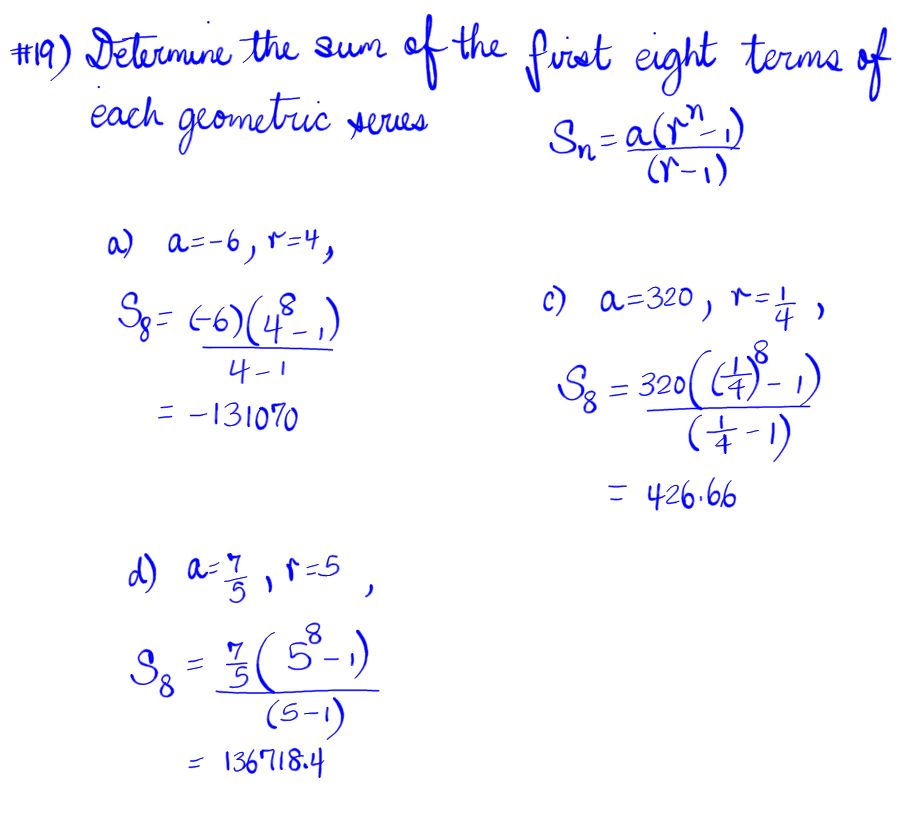 #19) Determine the sum of the first eight terms of
each geometric series
Sn = a(r^n - 1) / (r - 1)
a) a = -6, r = 4,
S8 = (-6)(4^8 - 1) / 4 - 1
= -131070
c) a = 320, r = 1/4,
S8 = 320((1/4)^8 - 1) / (1/4 - 1)
= 426.66
d) a = 7/5, r = 5,
S8 = 7/5(5^8 - 1) / (5 - 1)
= 136718.4